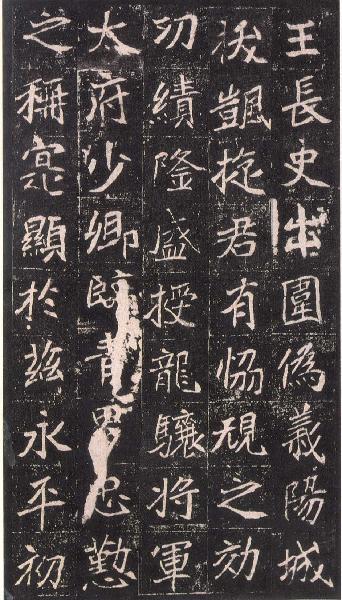 王長史出圍偽義陽城
拔凱旋君有恊規之効
功績隆盛授龍驤將軍
太府少卿臨青男忠懃
之稱寔顯於茲永平初